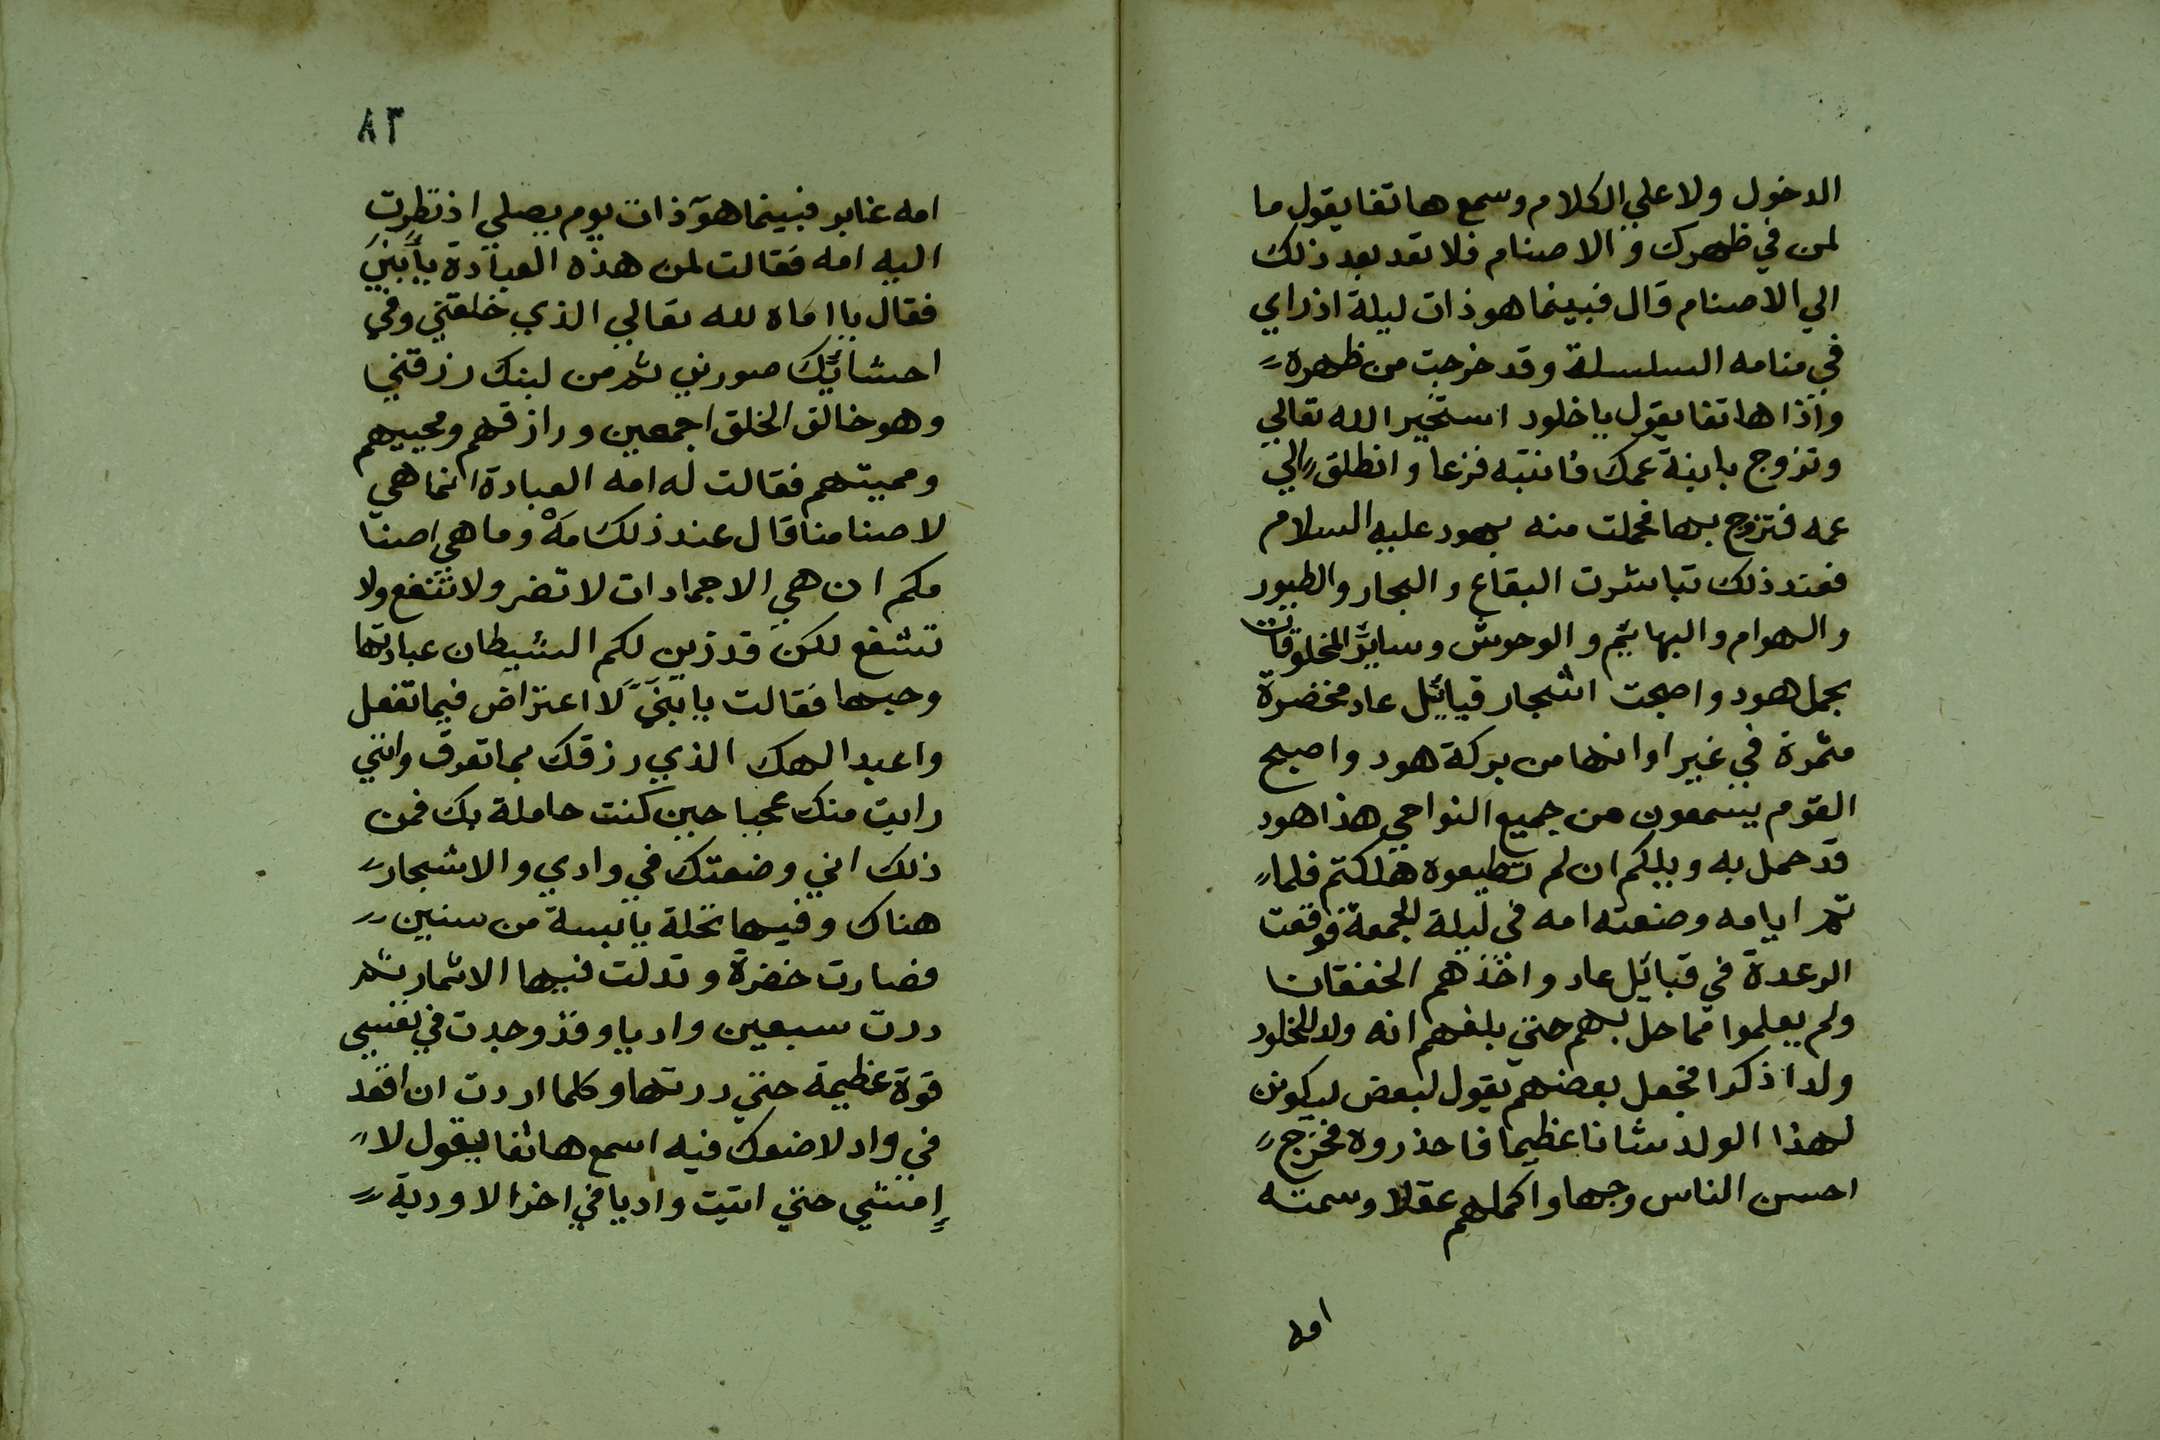 الدخول ولا علي الكلام وسمع هاتفا يقول ما
لمن في ظهرك و الاصنام فلا تعد بعد ذلك
الي الاصنام قال فبينما هو ذات ليلة اذ راي
في منامه السلسلة وقد خرجت من ظهره
واذا هاتفا يقول يا خلود استخير الله تعالي
وتزوج بابنة عمك فانتبه فزعا وانطلق الي
عمه فتزوج بها فحملت منه بهود عليه السلام
فعند ذلك تباشرت البقاع والبحار والطيور
والهوام والبهايم والوحوش وساير المخلوقات
بحمل هود واصبحت اشجار قبايل عاد مخضرة
مثمرة في غير اوانها من بركة هود واصبح
القوم يسمعون من جميع النواحي هذا هود
قد حمل به ويلكم ان لم تطيعوه هلكتم فلما
تم ايامه وضعته امه في ليلة الجمعة فوقعت
الرعدة في قبائل عاد واخذهم الخفقان
ولم يعلموا مما حل بهم حتي بلغهم انه ولد لخلود
ولدا ذكرا فجعل بعضهم يقول لبعض ليكونن
لهذا الولد شانا عظيما فاحذروه فخرج
احسن الناس وجها واكملهم عقلا وسمته
امه
٨٣
امه عنابر فبينما هو ذات يوم يصلي اذ نظرت
اليه امه فقالت لمن هذه العبادة يا بني
فقال يا اماه لله تعالي الذي خلقني وفي
احشائك صورني ثم من لبنك رزقني
وهو خالق الخلق اجمعين ورازقهم ومحييهم
ومميتهم فقالت له امه العبادة انما هي
لاصنامنا قال عند ذلك مه وما هي اصنا
مكم ان هي الا جمادات لا تضر ولا تنفع ولا
تشفع لكن قد زين لكم الشيطان عبادتها
وحبها فقالت يا بني لا اعتراض فيما تفعل
واعبد الهك الذي رزقك بما تعرف وانني
رايت منك عجبا حين كنت حاملة بك فمن
ذلك اني وضعتك في وادي والاشجار
هناك وفيها نخلة يابسة من سنين
فصارت خضرة وتدلت فيها الاثمار ثم
درت سبعين واديا وقد وجدت في نفسي
قوة عظيمة حتي درتها وكلما اردت ان اقعد
في واد لاضعك فيه اسمع هاتفا يقول لا
امشي حتي اتيت واديا في اخر الاودية